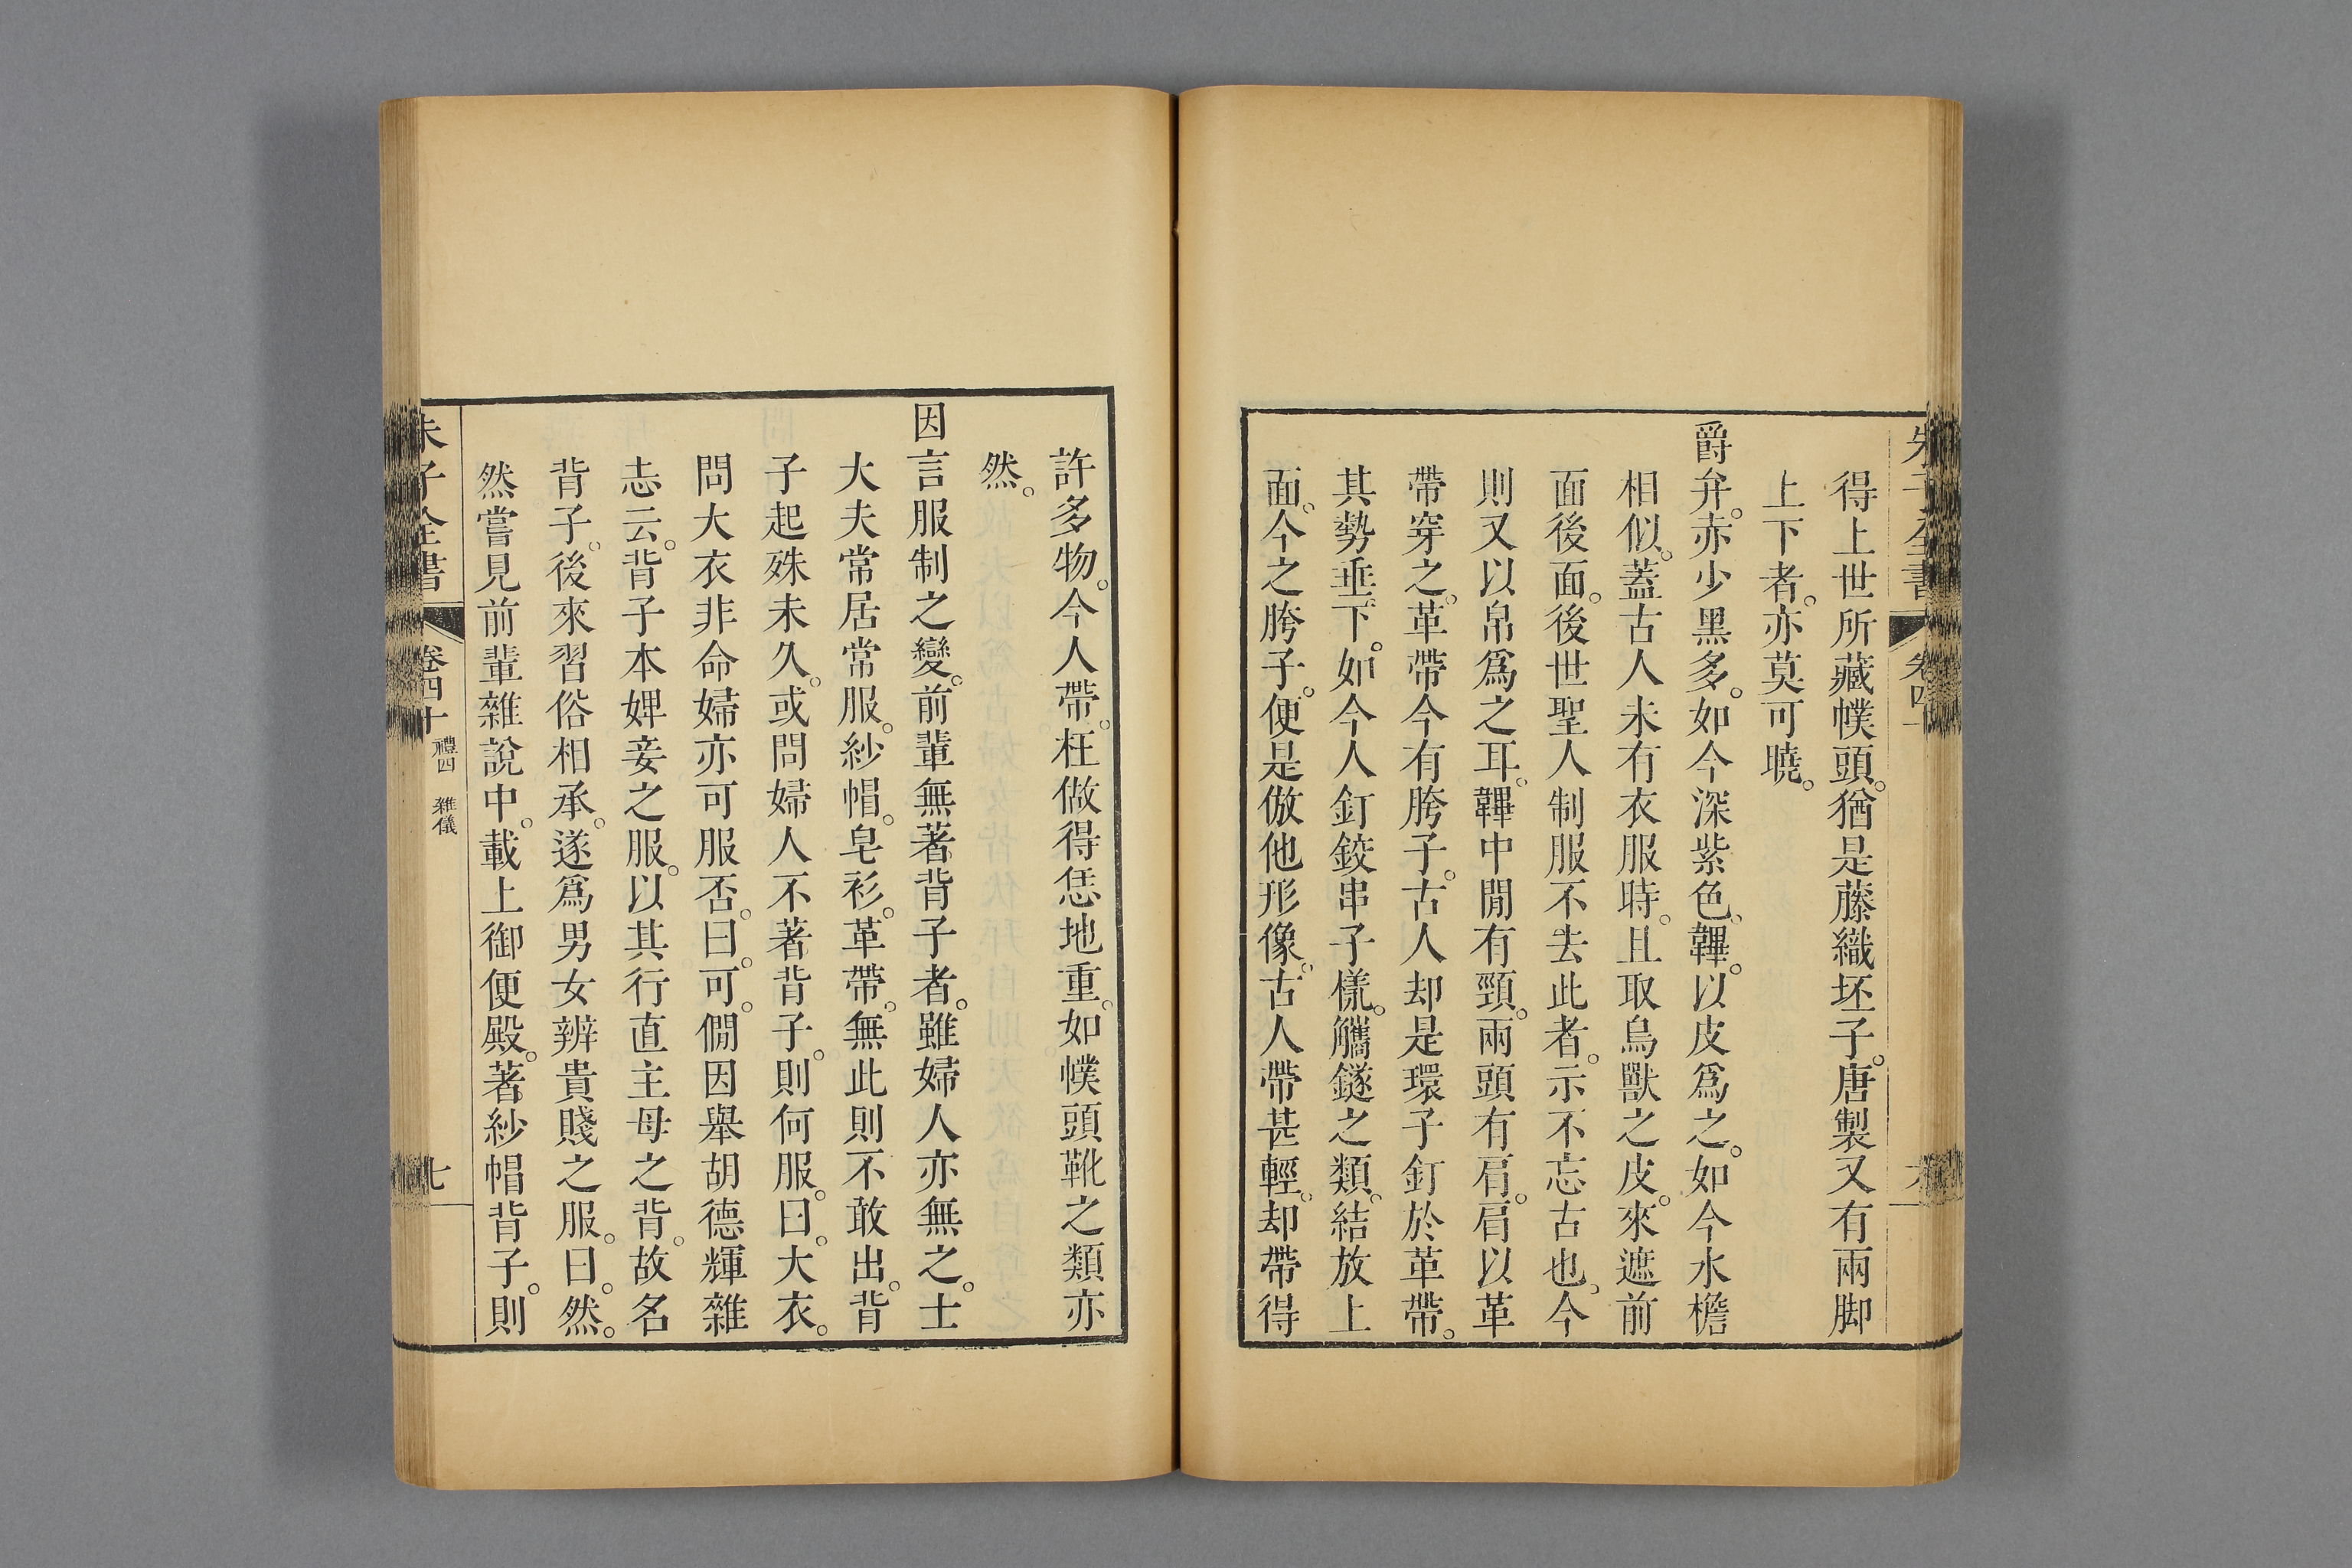 朱子全書 卷四十 六
得上世所藏幞頭。猶是藤織坯子。唐製又有兩脚
上下者。亦莫可曉。
爵弁。赤少黑多。如今深紫色。韠。以皮爲之。如今水檐
相似。蓋古人未有衣服時。且取鳥獸之皮。來遮前
面後面。後世聖人制服不去此者。示不忘古也。今
則又以帛爲之耳。韠中閒有頸。兩頭有肩。肩以革
帶穿之。革帶今有胯子。古人却是環子釘於革帶。
其勢垂下。如今人釘鉸串子㨾。觿鐩之類。結放上
面。今之胯子。便是倣他形像。古人帶甚輕。却帶得
許多物。今人帶。枉做得恁地重。如幞頭靴之類亦
然。
因言服制之變。前輩無著背子者。雖婦人亦無之。士
大夫常居常服。紗帽。皂衫。革帶。無此則不敢出。背
子起殊未久。或問婦人不著背子。則何服。曰。大衣。
問大衣非命婦亦可服否。曰。可。僩因舉胡德輝雜
志云。背子本婢妾之服。以其行直主母之背。故名
背子。後來習俗相承。遂爲男女辨貴賤之服。曰。然。
然嘗見前輩雜說中。載上御便殿。著紗帽背子。則
朱子全書 卷四十 禮四 雜儀 七